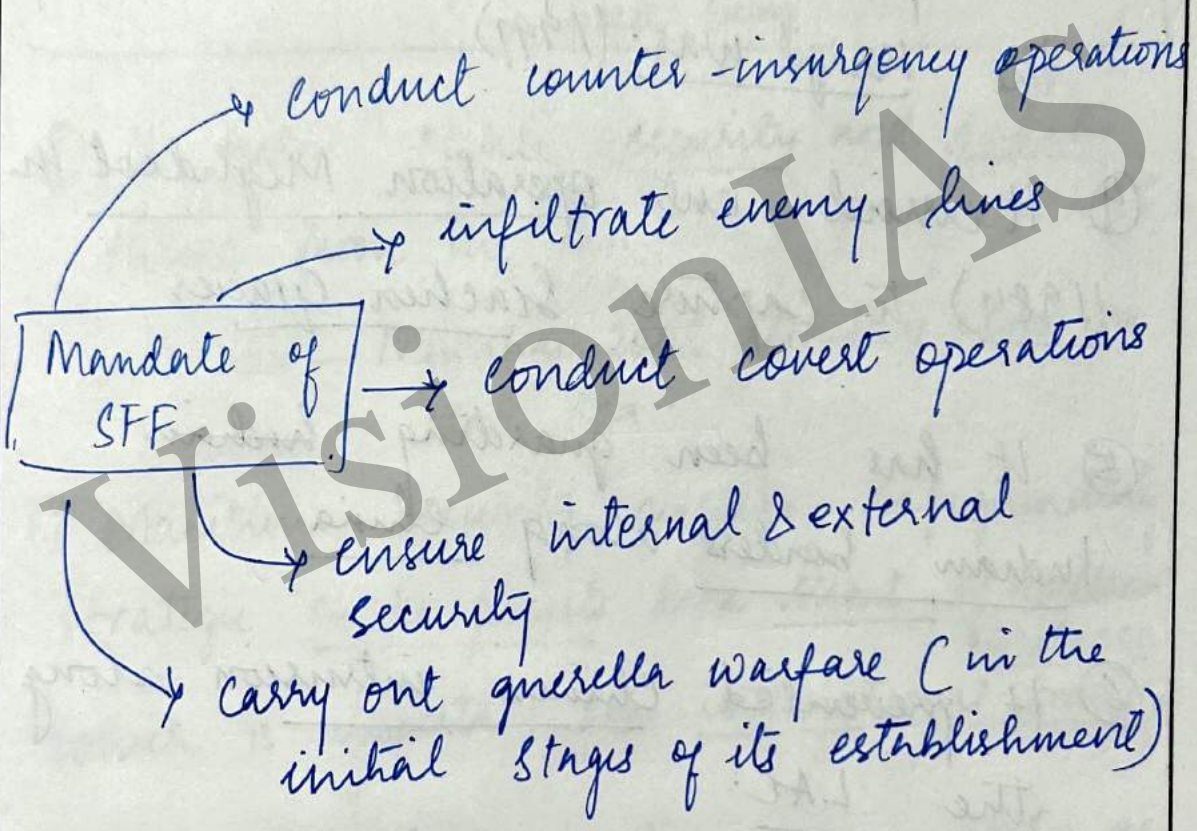 conduct counter-insurgency operations
infiltrate enemy lines
Mandate of
SFF
conduct covert operations
ensure internal & external
security
carry out guerella warfare (in the
initial stages of its establishment)
VisionIAS